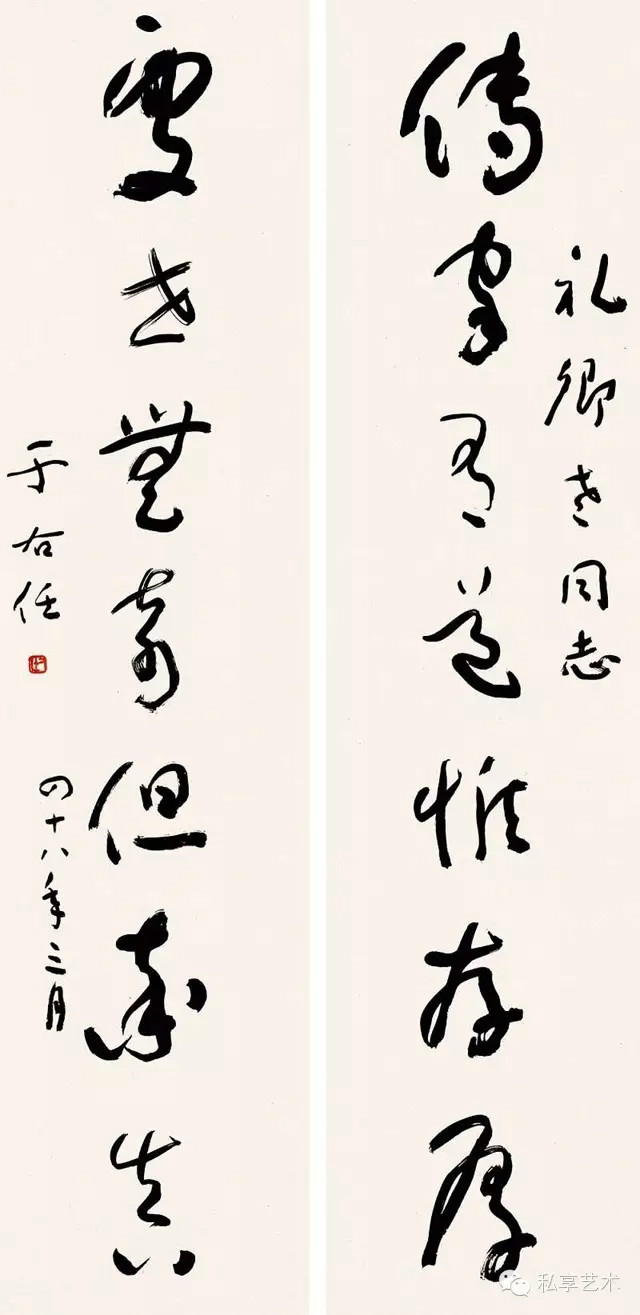 礼卿老同志
傳家有道惟存厚
處世無奇但率真
于右任
四十八年三月
私享艺术